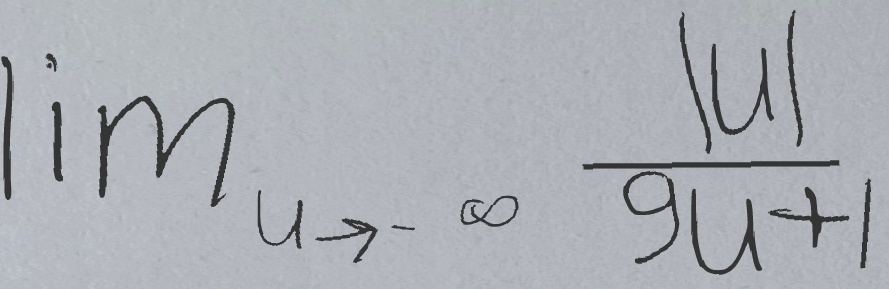 lim u→-∞ |u|
9u+1